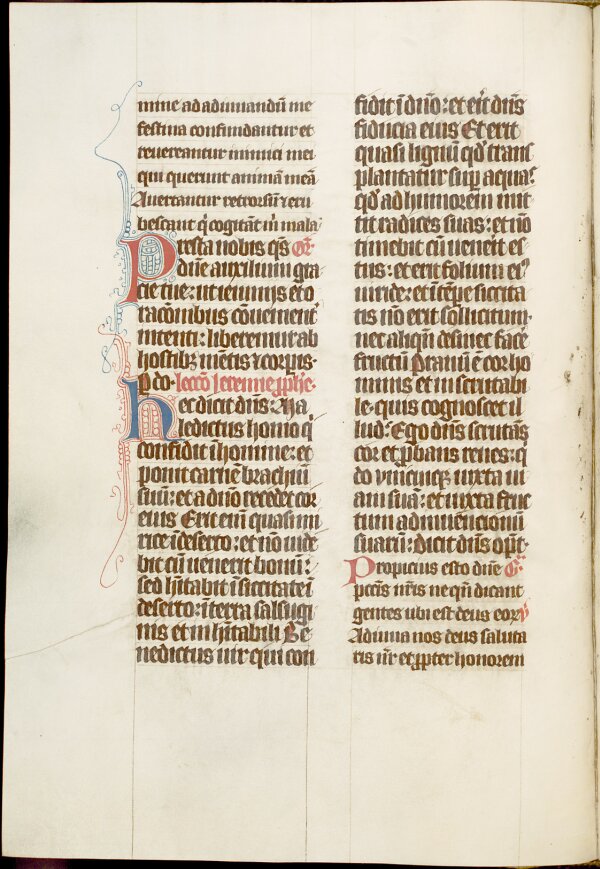 mine ad adiuuandū me
festina confundantur et
reuereantur inimici mei
qui querunt animā meā
Auertantur retrorsū ⁊ eru
bescant q̇ cogitāt m̄ mala
Presta nobis q̄s Or̄
dn̄e auxilium gra
cie tue: ut ieiunijs et o
racōnibus cōuenient̾
intenti: liberemur ab
hostibꝫ mētis ⁊ corꝑis.
P do. lectō Jeremie ꝓph̄e.
hec dicit dn̄s: Ma
ledictus homo q̇
confidit ī homine: et
ponit carnē brachiū
suū: et a dn̄o recedet cor
eius Erit enī quasi mi
rice ī deserto: et nō uide
bit cū uenerit bonū:
sed h̄itabit ī siccitate ī
deserto: ī terra salsugi
nis et inh̄itabili Be
nedictus uir qui con
fidit ī dn̄o: et erit dn̄s
fiducia eius Et erit
quasi lignū qd̄ trans
plantatur suꝑ aquas
qd̄ ad humorem mit
tit radices suas: et nō
timebit cū uenerit es
tus: et erit folium ei᷒
uiride: et ī tēpe siccita
tis nō erit sollicitum.
nec aliqn̄ desinet face͛
fructū Prauū ē cor ho
minis et inscrutabi
le. quis cognoscet il
lud: Ego dn̄s scrutās
cor et ꝓbans renes: q̇
do vnicuiqꝫ iuxta ui
am suā: et iuxta fruc
tum adinuencionū
suarū: dicit dn̄s op̄t.
Propicius esto dn̄e Gͬ.
pcc̄is nr̄is ne qn̄ dicant
gentes ubi est deus eoꝝ
Adiuua nos deus saluta
ris nr̄ et ꝓpter honorem